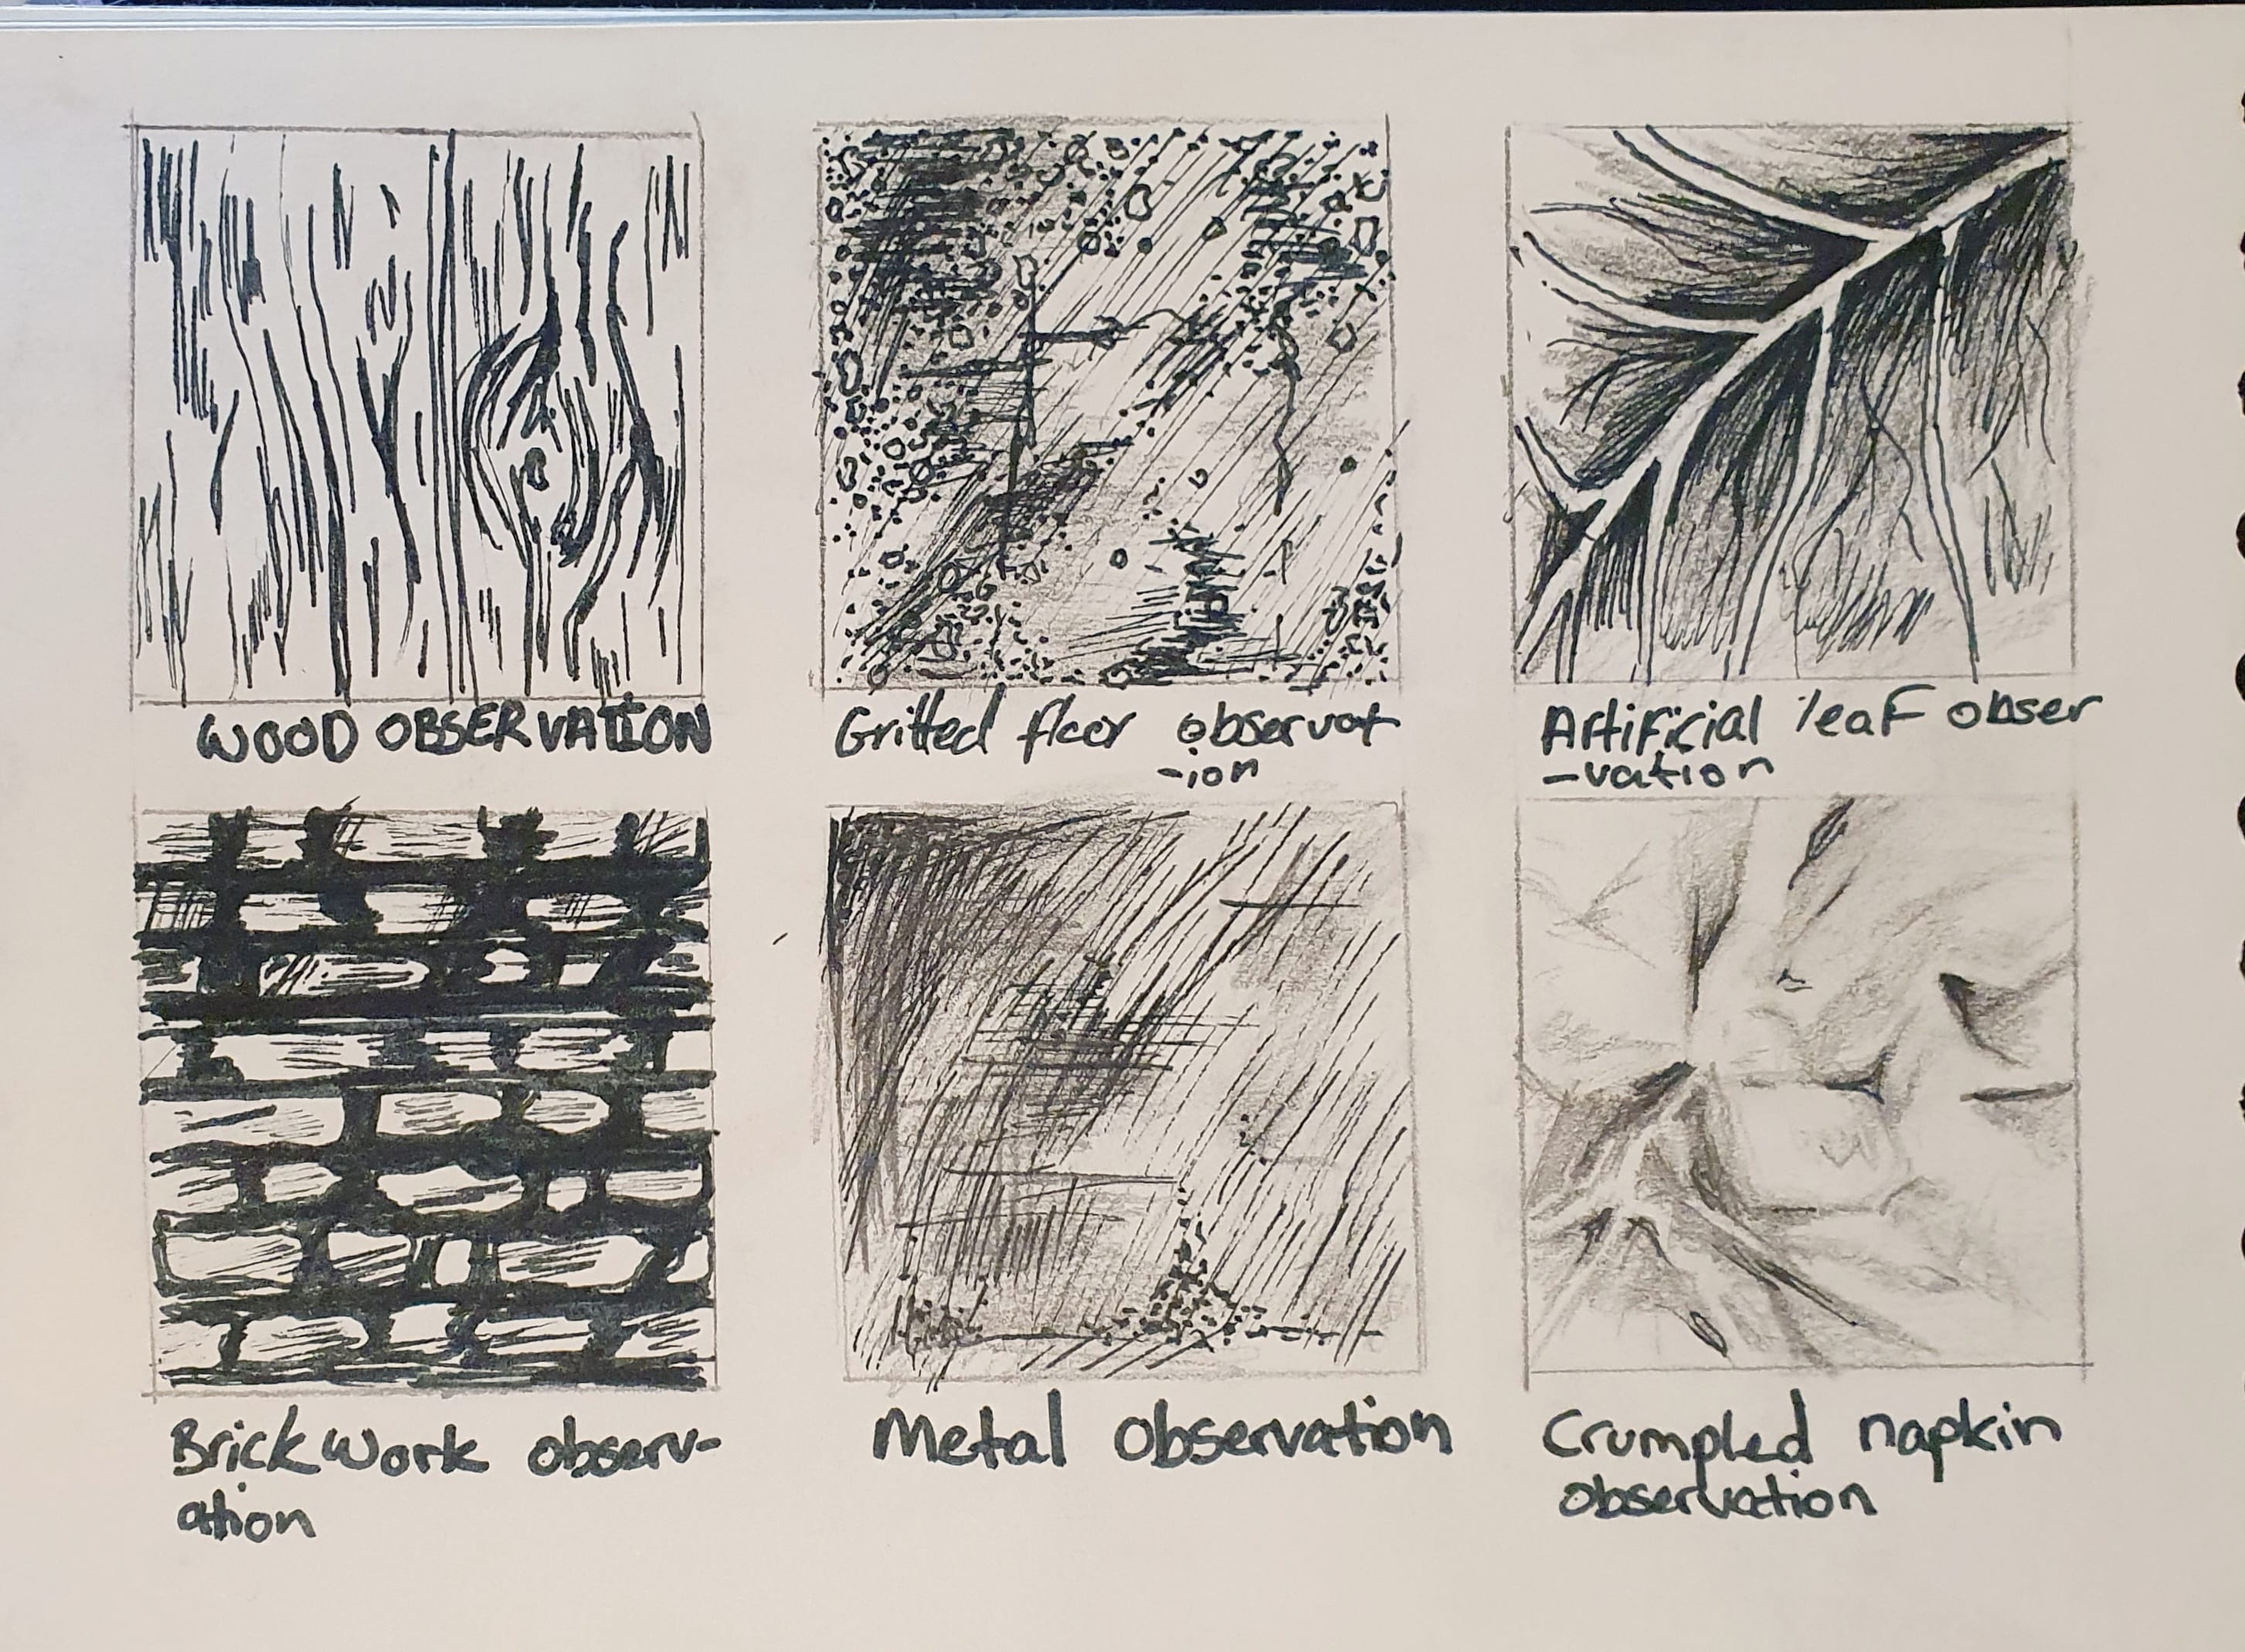 WOOD OBSERVATION
Gritted floor observat
-ion
Artificial leaf obser
-vation
Brickwork observ-
ation
Metal observation
Crumpled napkin
observation